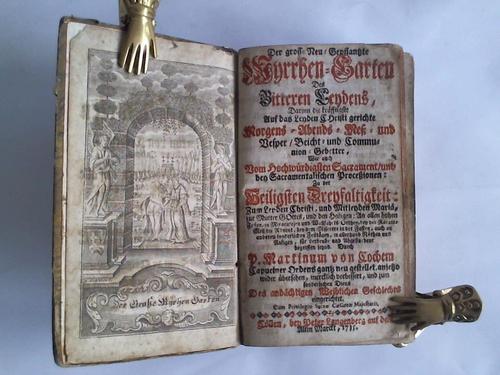 Der groß-Neu-Gepflantzte
Myrrhen-Garten
Des
Bitteren Leydens,
Darinn die kräfftigste
Auf das Leyden Christi gerichte
Morgens-Abends-Meß-und
Vesper/Beicht-und Commu-
nion-Gebetter,
Wie auch
Vom Hochwürdigsten Sacrament/und
den Sacramentalischen Processionen:
Zu der
Heiligsten Dreyfaltigkeit:
Zum Leyden Christi, und Mitleyden Mariä,
zur Mutter GOttes, und den Heiligen: An allen hohen
begriffen seynd. Durch
P. Martinum von Cochem
Capuciner Ordens gantz neu gestellet, anjetzo
wider übersehen, mercklich verbessert, und zum
sonderlichen Dienst
Des andächtigen Weiblichen Geschlechts
eingerichtet.
Cum Privilegio Sacræ Cæsareæ Majestatis.
Cöllen, bey Peter Langenberg auf dem
Alten Marckt, 1735.
Der Große Myrhen Garten